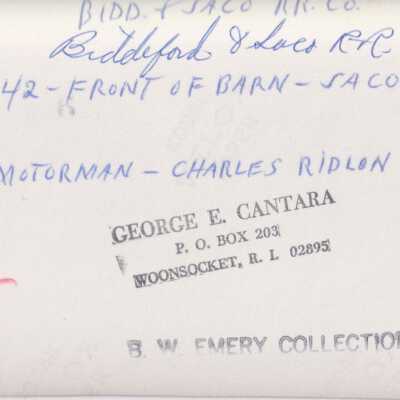 BIDD. & SACO RR. CO.
Biddeford & Saco RR
42 - FRONT OF BARN - SACO
MOTORMAN - CHARLES RIDLON
GEORGE E. CANTARA
P. O. BOX 203
WOONSOCKET, R. I. 02895
B. W. EMERY COLLECTION